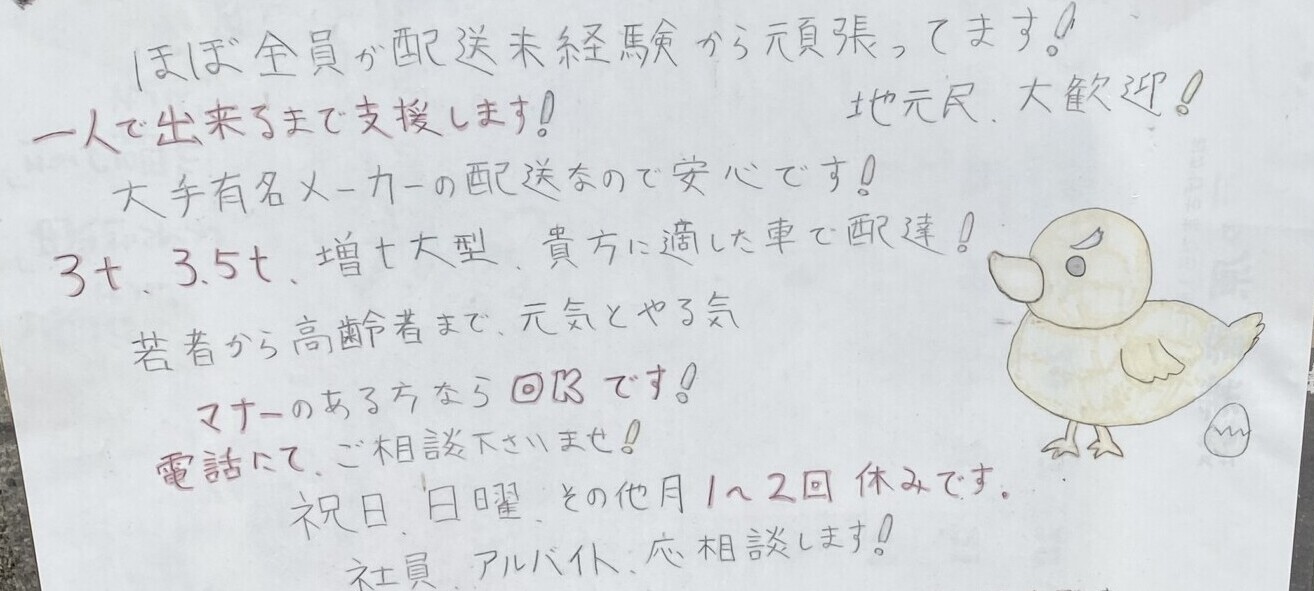 ほぼ全員が配送未経験から頑張ってます!
地元民、大歓迎!
一人で出来るまで支援します!
大手有名メーカーの配送なので安心です!
3t、3.5t、増t大型、貴方に適した車で配達!
若者から高齢者まで、元気とやる気
マナーのある方ならOKです!
電話にて、ご相談下さいませ!
祝日、日曜、その他月1〜2回休みです。
社員、アルバイト、応相談します!